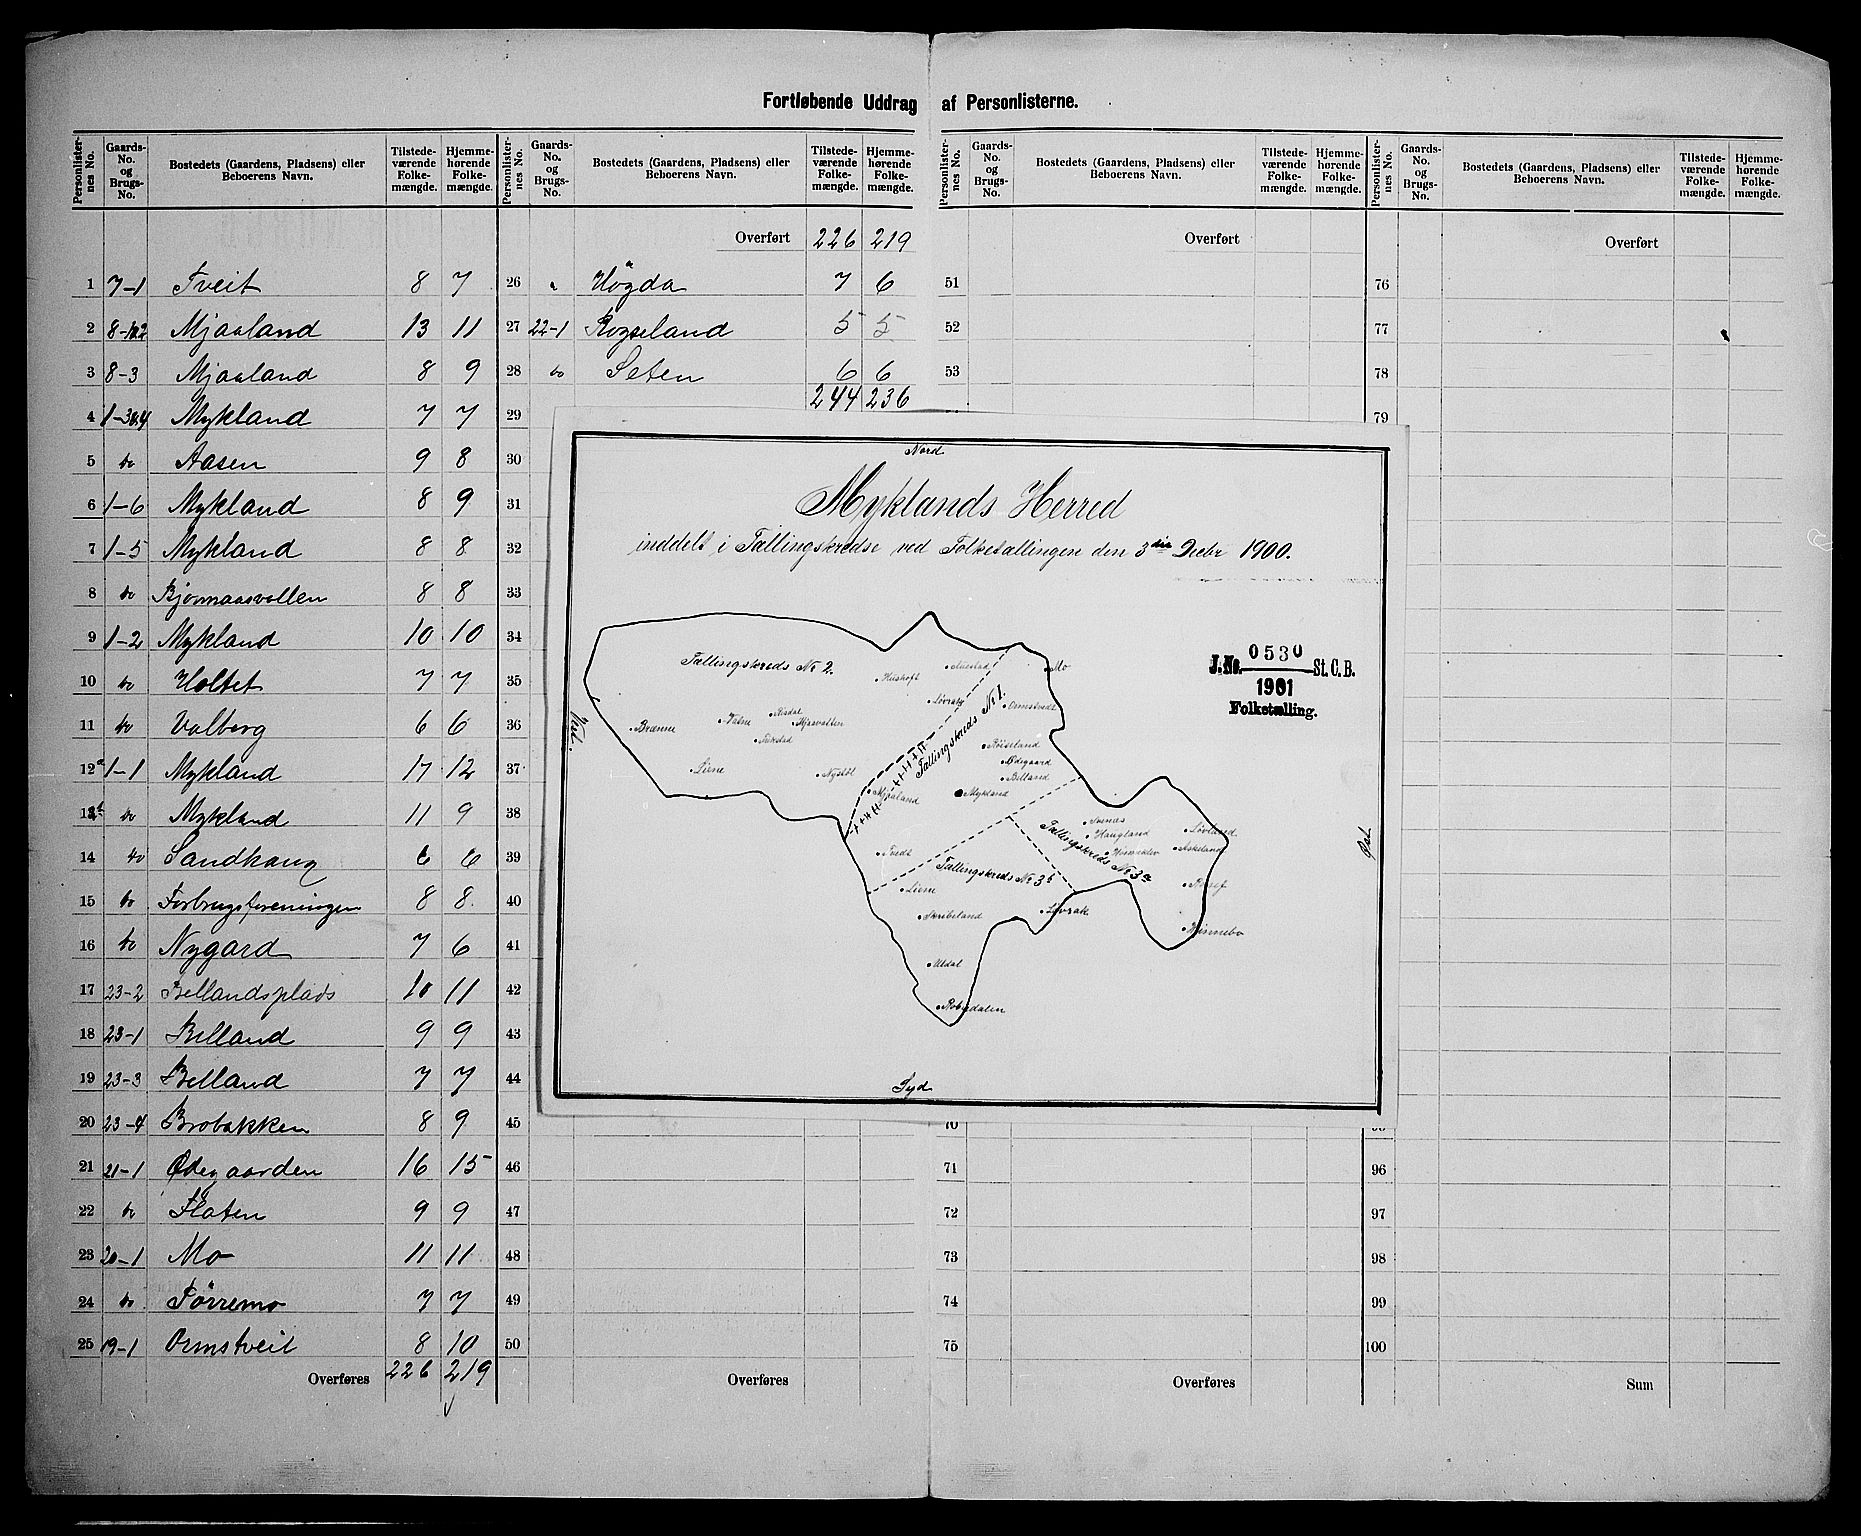 Fortløbende Uddrag af Personlisterne.
Personlister-nes No. | Gaards-No. og Brugs-No. | Bostedets (Gaardens, Pladsens) eller Beboerens Navn. | Tilstede-værende Folke-mængde. | Hjemme-hørende Folke-mængde.
Personlister-nes No. | Gaards-No. og Brugs-No. | Bostedets (Gaardens, Pladsens) eller Beboerens Navn. | Tilstede-værende Folke-mængde. | Hjemme-hørende Folke-mængde.
Personlister-nes No. | Gaards-No. og Brugs-No. | Bostedets (Gaardens, Pladsens) eller Beboerens Navn. | Tilstede-værende Folke-mængde. | Hjemme-hørende Folke-mængde.
Personlister-nes No. | Gaards-No. og Brugs-No. | Bostedets (Gaardens, Pladsens) eller Beboerens Navn. | Tilstede-værende Folke-mængde. | Hjemme-hørende Folke-mængde.
1 7-1 Tveit 8 7
2 8-1 Mjaaland 13 11
3 8-3 Mjaaland 8 9
4 Mykland 7 7
5 do Aasen 9 8
6 1-6 Mykland 8 9
7 1-5 Mykland 8 8
8 do Bjormaasvollen 8 8
9 1-2 Mykland 10 10
10 do Holtet 7 7
11 do Valberg 6 6
12a 1-1 Mykland 17 12
do Mykland 11 9
14 do Sandhaug 6 6
15 do Forbrugsforeningen 8 8
16 do Nygard 7 6
17 23-2 Bellandsplads 10 11
18 23-1 Belland 9 9
19 23-3 Belland 7 7
20 23-4 Brobakken 8 9
21 21-1 Ødegaarden 16 15
22 do Flaten 9 9
23 20-1 Mo 11 11
24 do Törremo 7 7
25 19-1 Ormstveit 8 10
Overføres 226 219
Overført 226 219
26 " Högda 7 6
27 22-1 Rogseland 5 5
28 do Seten 6 6
244 236
29
30
31
32
33
34
35
36
37
38
39
40
41
42
43
44
45
46
47
48
49
50
Overføres
Overført
51
52
53
70
71
72
73
74
75
Overføres
Overført
76
77
78
79
96
97
98
99
100
Sum
Nord
Myklands Herred
inddelt i Tællingskredse ved Folketællingen den 3die Decbr 1900.
J.No. 0530 St.C.B.
1901
Folketælling.
Vest.
Øst.
Syd
Tællingskreds № 2.
Tællingskreds № 1.
Tællingskreds № 3b
Tællingskreds № 3a
Mo
Ormstvedt
Brænne
Risdal
Mjaavatten
Liene
Nystöl
Mjaaland
Röiseland
Ødegaard
Belland
Mykland
Haugland
Løvland
Askeland
Tvedt
Liene
Skribeland
Lövrak
Vinnebo
Uldal